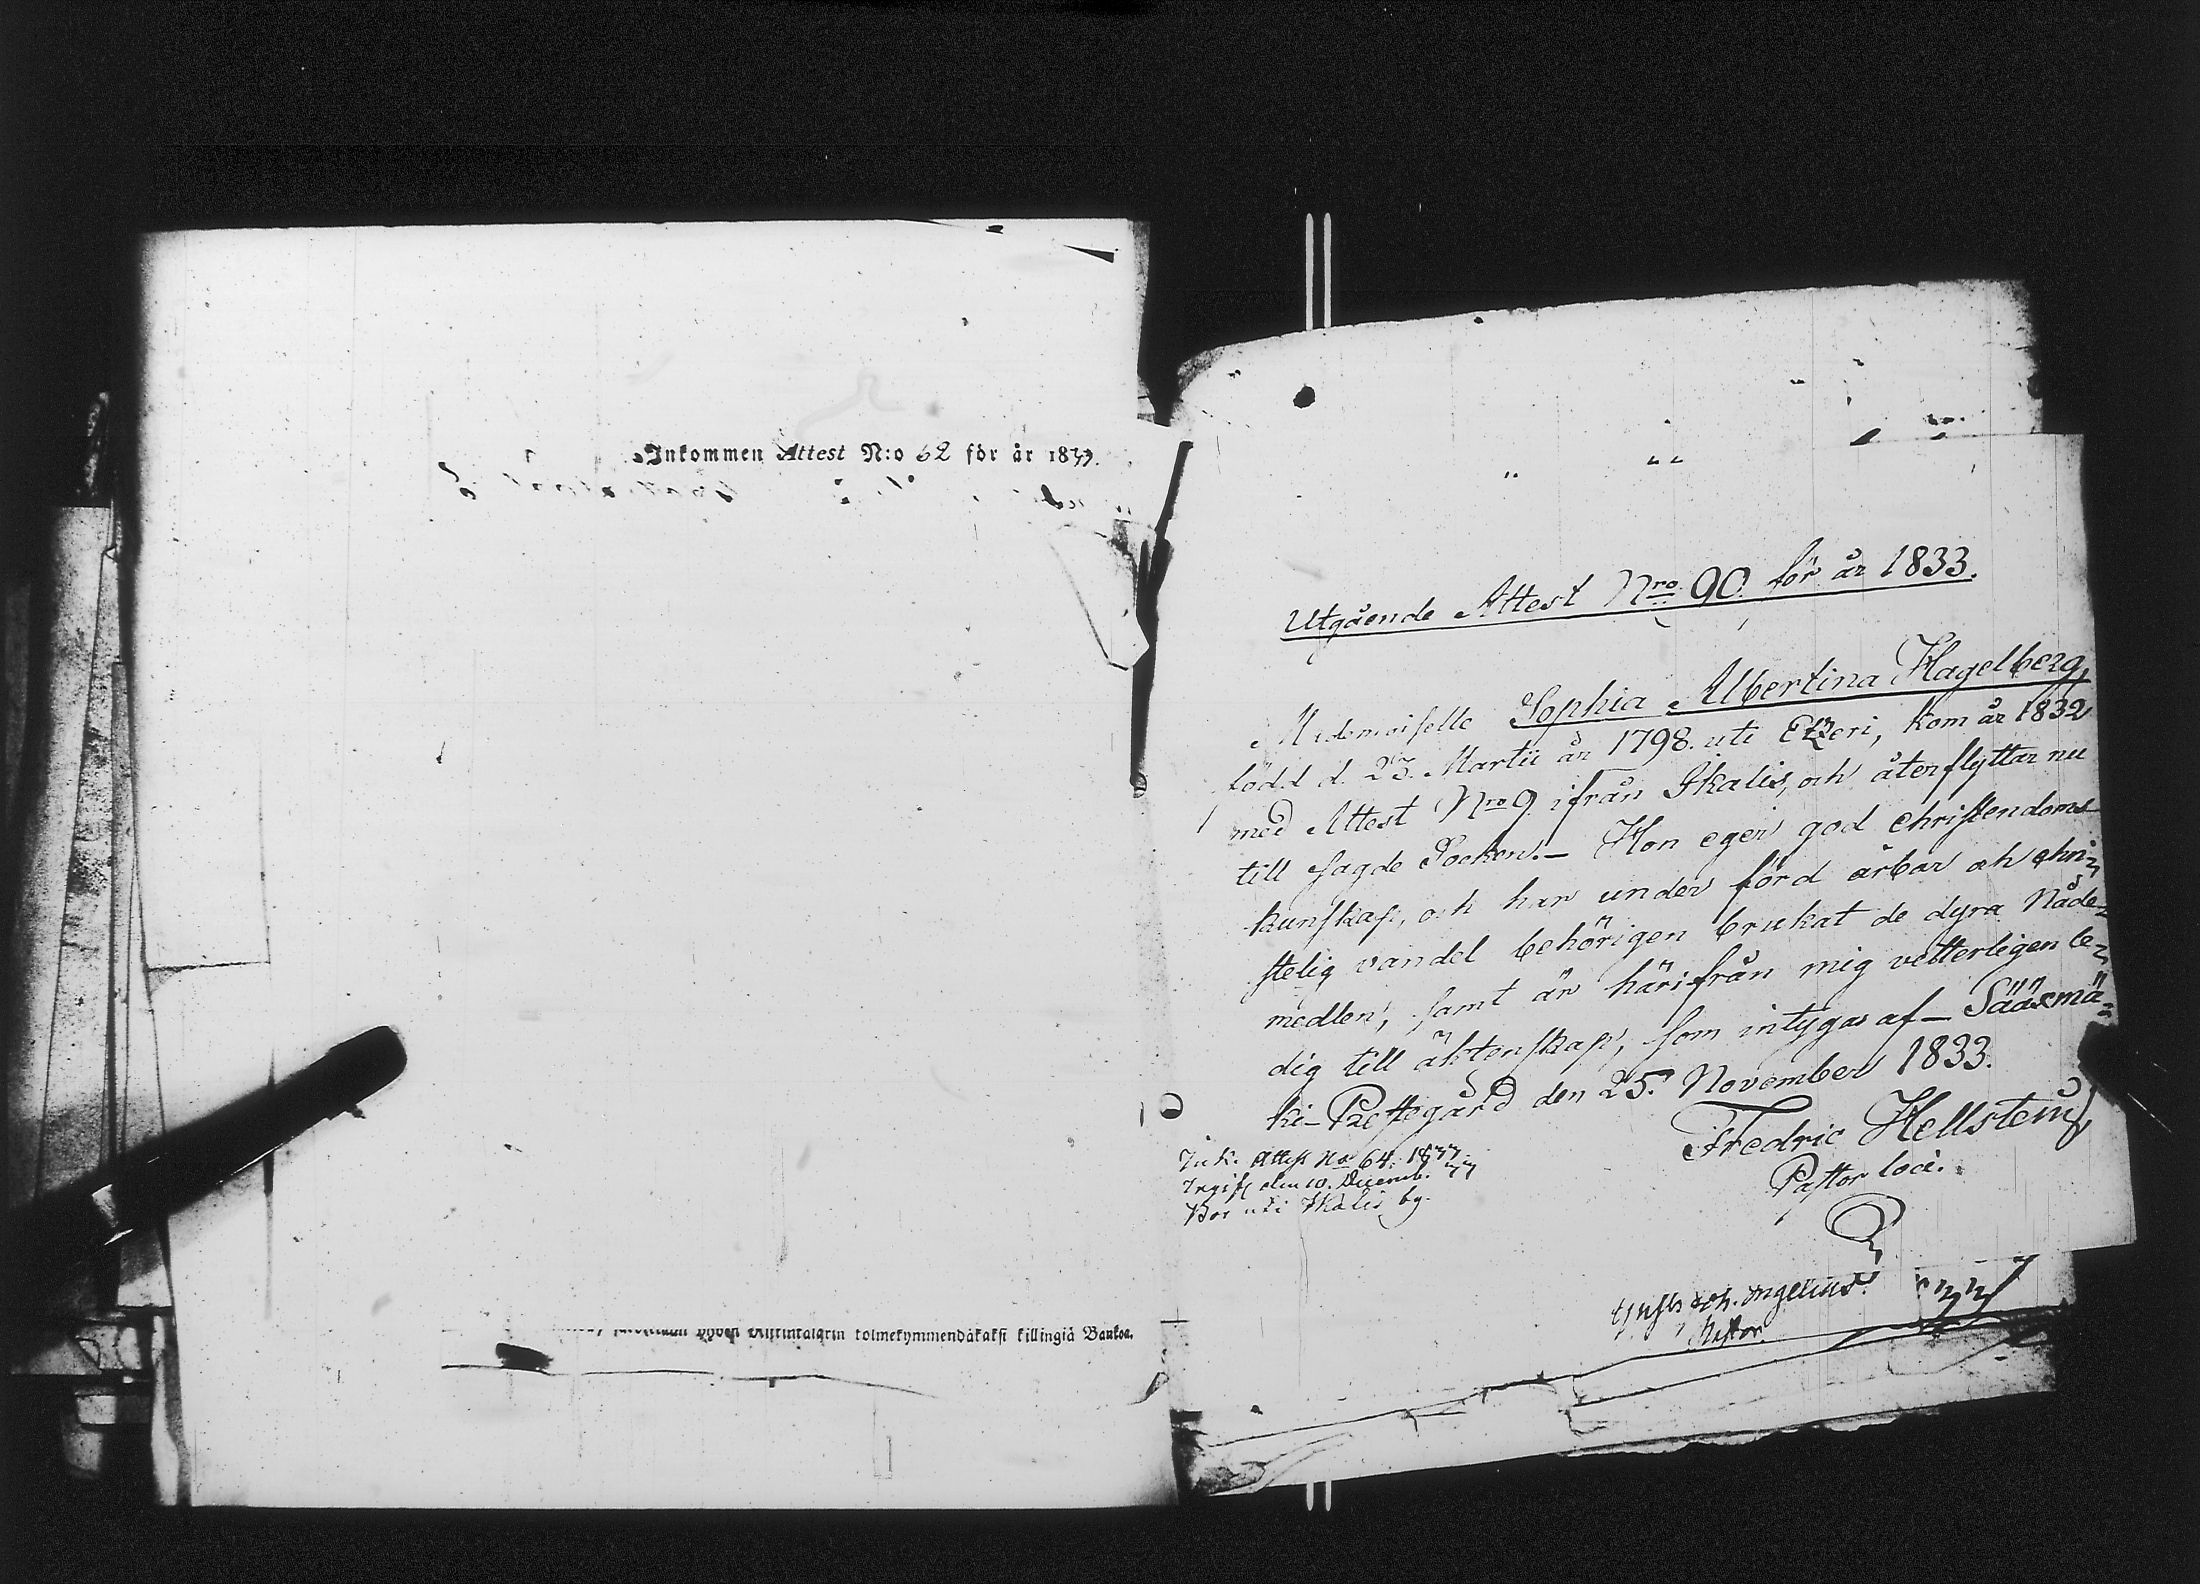 Inkommen Attest N:o 62 för år 1833.
killingiä Bankoa.
Utgående Attest Nro 90. för år 1833.
Mademoiselle Sophia Albertina Hagelberg,
född d. 23. Martii år 1798. uti Etzeri, kom år 1832
med Attest Nro 9 ifrån Ikalis, och återflyttar nu
till sagde Socken. – Hon eger god christendoms
kunskap, och har under förd ärbar och chri-
stelig vandel behörigen brukat de dyra Nåde-
medlen, samt är härifrån mig vetterligen le-
dig till äktenskap, som intygas af – Sääxmä-
ki – Prestegård den 25. November 1833.
Fredric Hellsten
Pastor loci.
Ink. Attest No 64. 1833.
den 10. Decemb. 33
Bor uti Ikalis by.